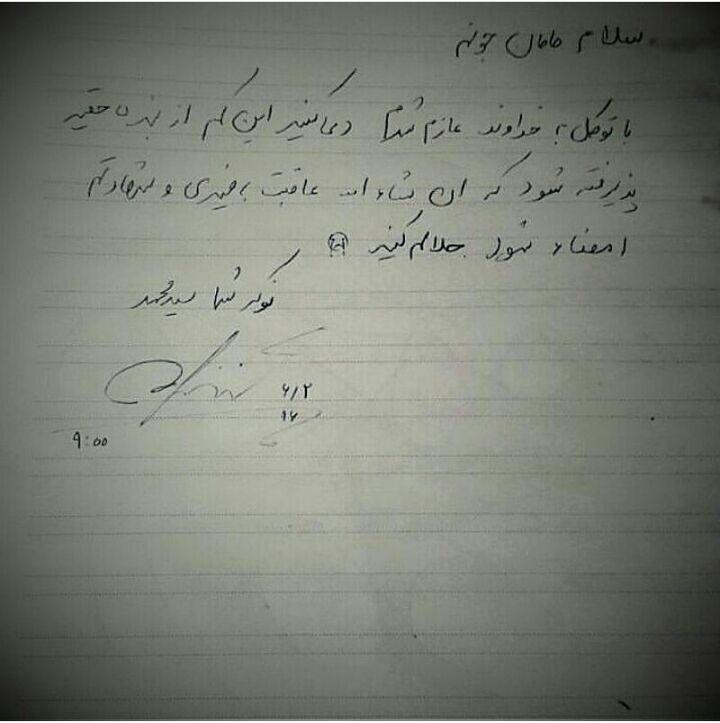 سلام مامان جونم
با توکل به خداوند عازم شدم دعا کنید این کم از بنده حقیر
پذیرفته شود که ان شاء الله عاقبت بخیری و شهادتم
امضاء شود حلالم کنید
نوکر شما سید محمد
۶/۲
۹۶
۹:۰۰